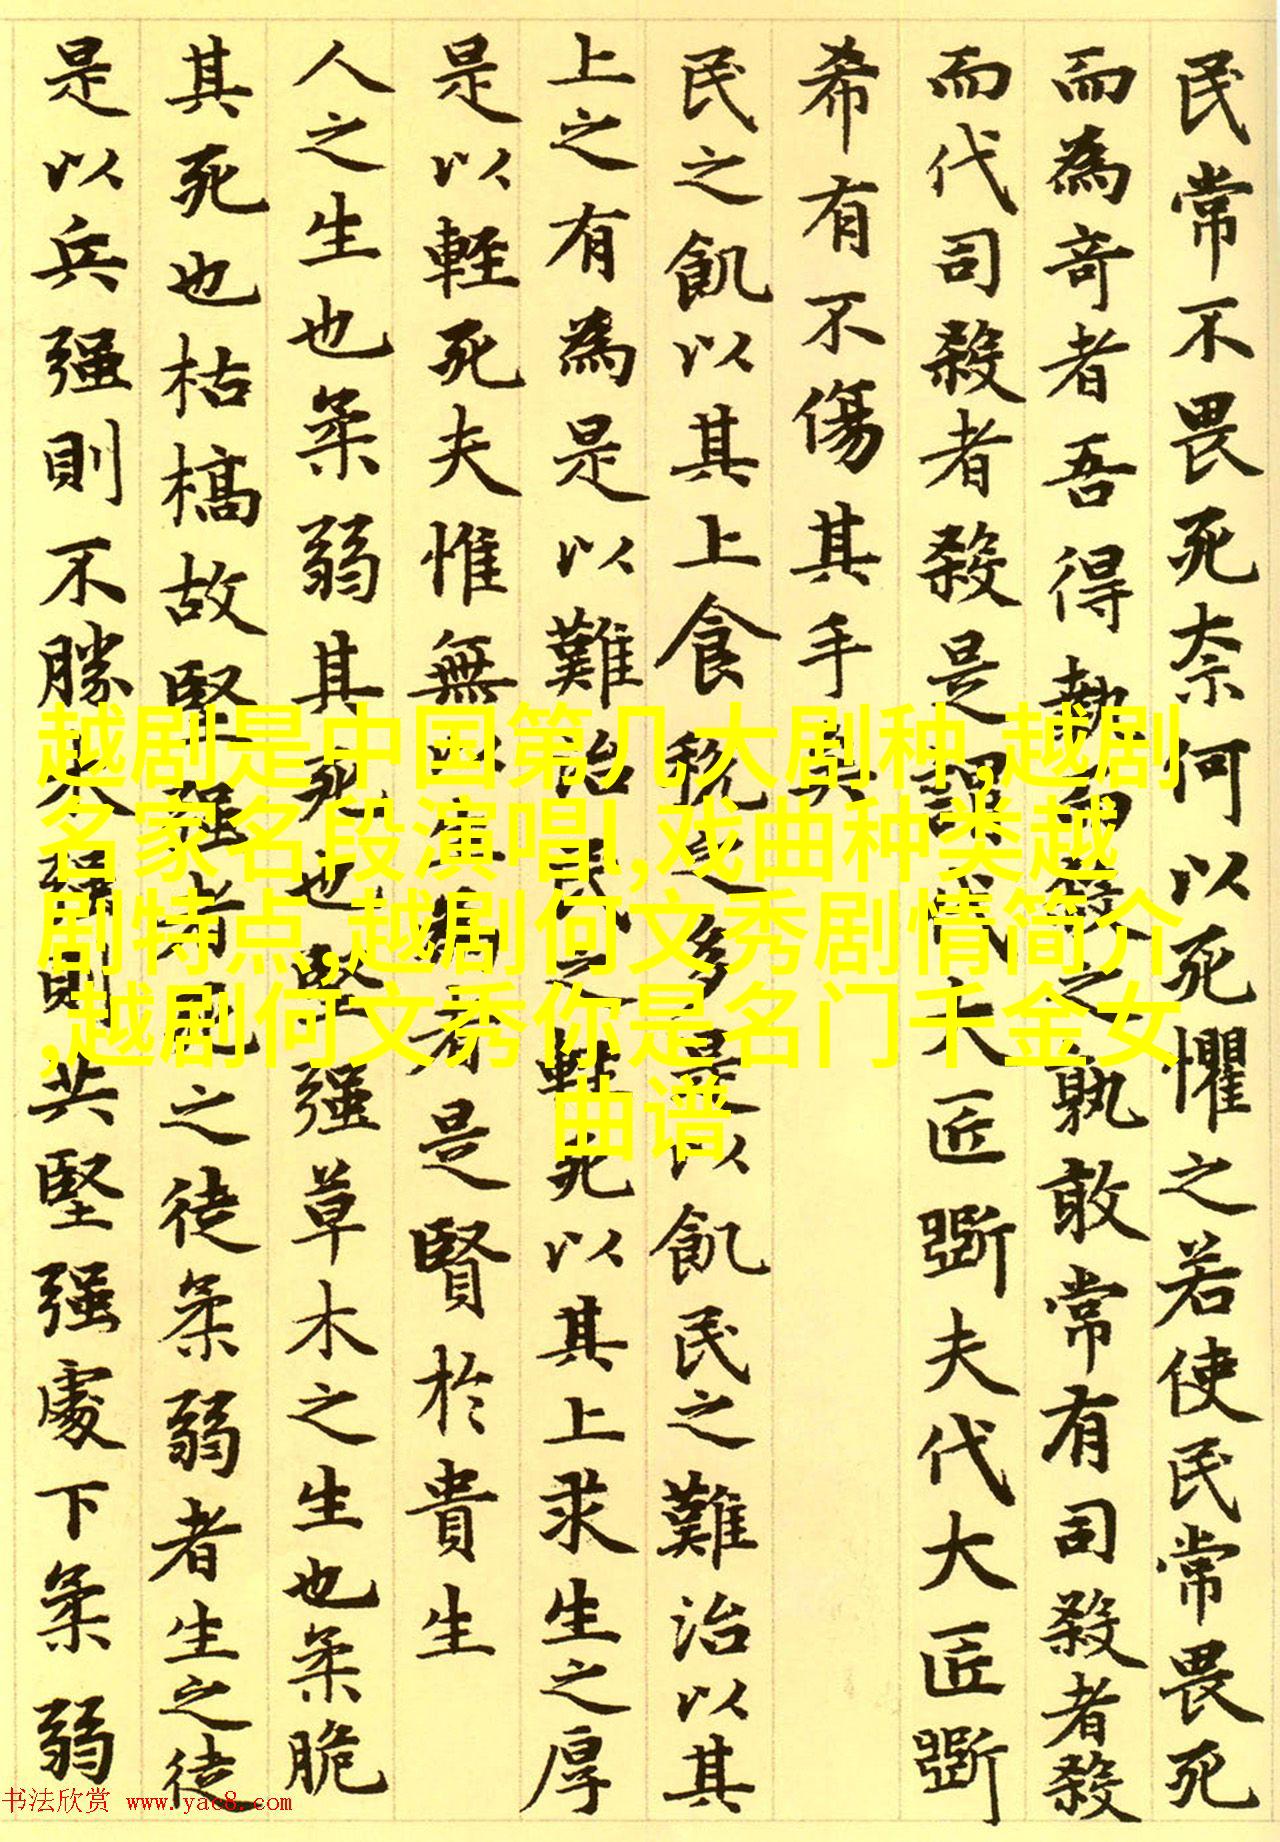 民常不畏死奈何以死懼之若使民常畏死
而為奇者吾得執而殺之孰敢常有司殺者殺
而代司殺者殺是謂代大匠斲夫代大匠斲
希有不傷其手矣
民之飢以其上食税之多是以飢民之難治以其
上之有為是以難治民之輕死以其上求生之厚
是以輕死夫惟無以生為者是賢於貴生
人之生也柔弱其死也堅强草木之生也柔脆
其死也枯槁故堅强者死之徒柔弱者生之徒
是以兵强則不勝木强則共堅强處下柔弱
越剧是中国第几大剧种,越剧
名家名段演唱l,戏曲种类越
剧特点,越剧何文秀剧情简介
,越剧何文秀你是名门千金女
曲谱
书法欣赏 www.yac8.com